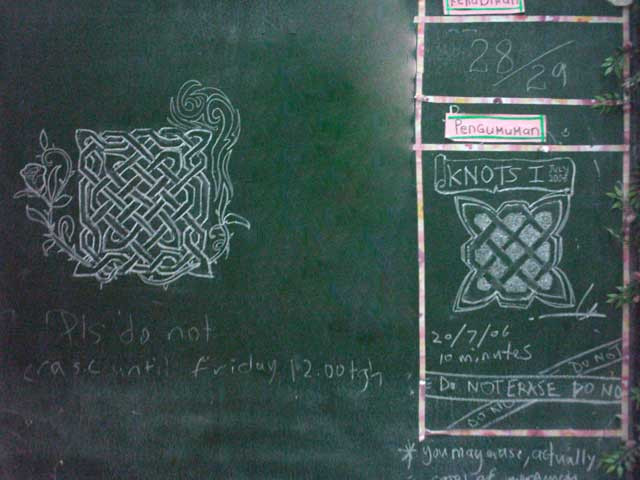 Kehadiran
28/29
Pengumuman
KNOTS I JULY 2006
20/7/06
10 minutes
DO NOT
E DO NOT ERASE DO NO
DO NO
* you may use, actually
Pls do not
erase until friday, 12.00tgh